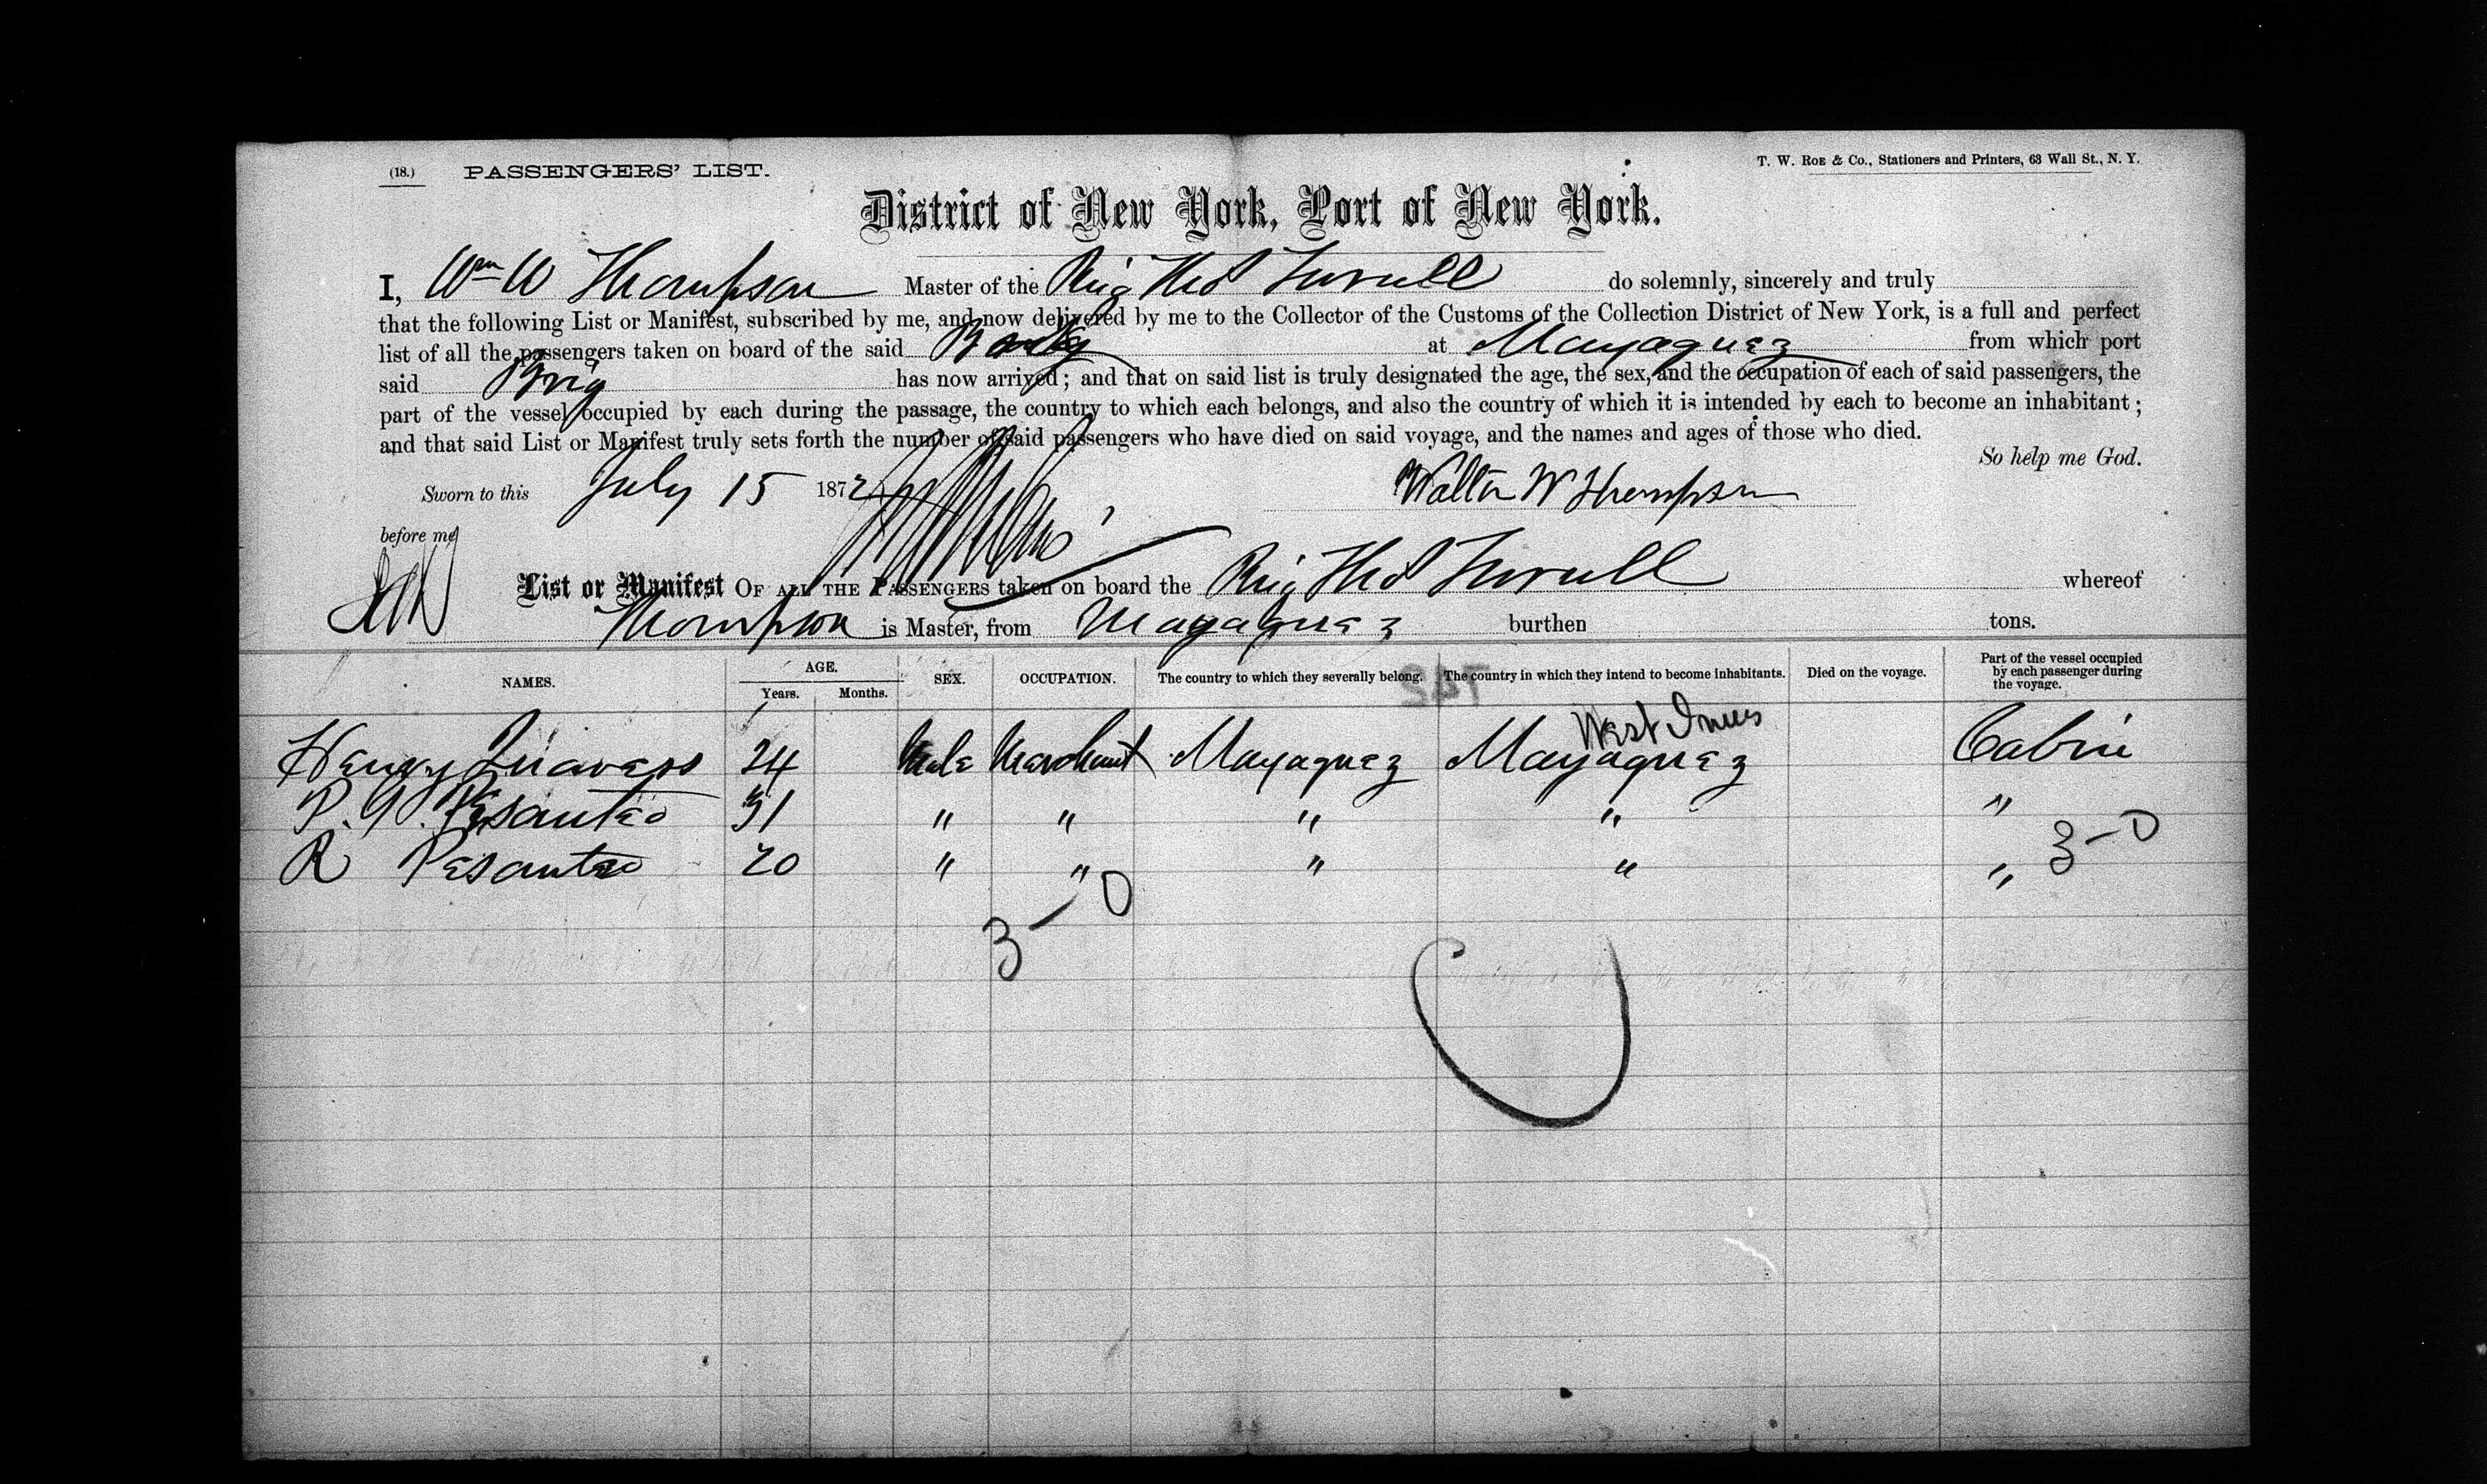 (18.) PASSENGERS' LIST. T. W. ROE & Co., Stationers and Printers, 63 Wall St., N. Y.
District of New York, Port of New York.
I, Wm W Thompson Master of the do solemnly, sincerely and truly
that the following List or Manifest, subscribed by me, and now delivered by me to the Collector of the Customs of the Collection District of New York, is a full and perfect
list of all the passengers taken on board of the said at Mayaguez from which port
said Brig has now arrived; and that on said list is truly designated the age, the sex, and the occupation of each of said passengers, the
part of the vessel occupied by each during the passage, the country to which each belongs, and also the country of which it is intended by each to become an inhabitant;
and that said List or Manifest truly sets forth the number of said passengers who have died on said voyage, and the names and ages of those who died.
So help me God.
Sworn to this July 15 1872 Walter W Thompson
before me
List or Manifest OF ALL THE PASSENGERS taken on board the whereof
Thompson is Master, from Mayaguez burthen tons.
NAMES. AGE. Years. Months. SEX. OCCUPATION. The country to which they severally belong. The country in which they intend to become inhabitants. Died on the voyage. Part of the vessel occupied by each passenger during the voyage.
West Indies
Henry 24 Male Merchant Mayaguez Mayaguez Cabin
31 " " " " "
R Pesantes 20 " " " " "
3-0
3-0